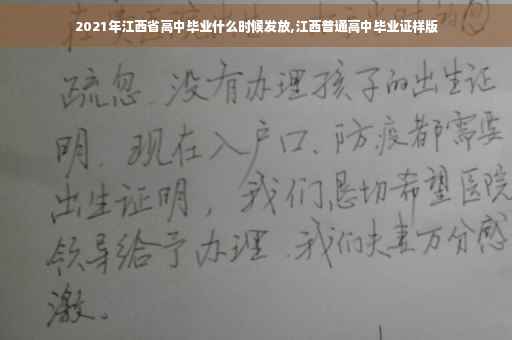 2021年江西省高中毕业什么时候发放,江西普通高中毕业证样版
疏忽、没有办理孩子的出生证
明、现在入户口、防疫都需要
出生证明,我们恳切希望医院
领导给予办理、我们夫妻万分感
激。